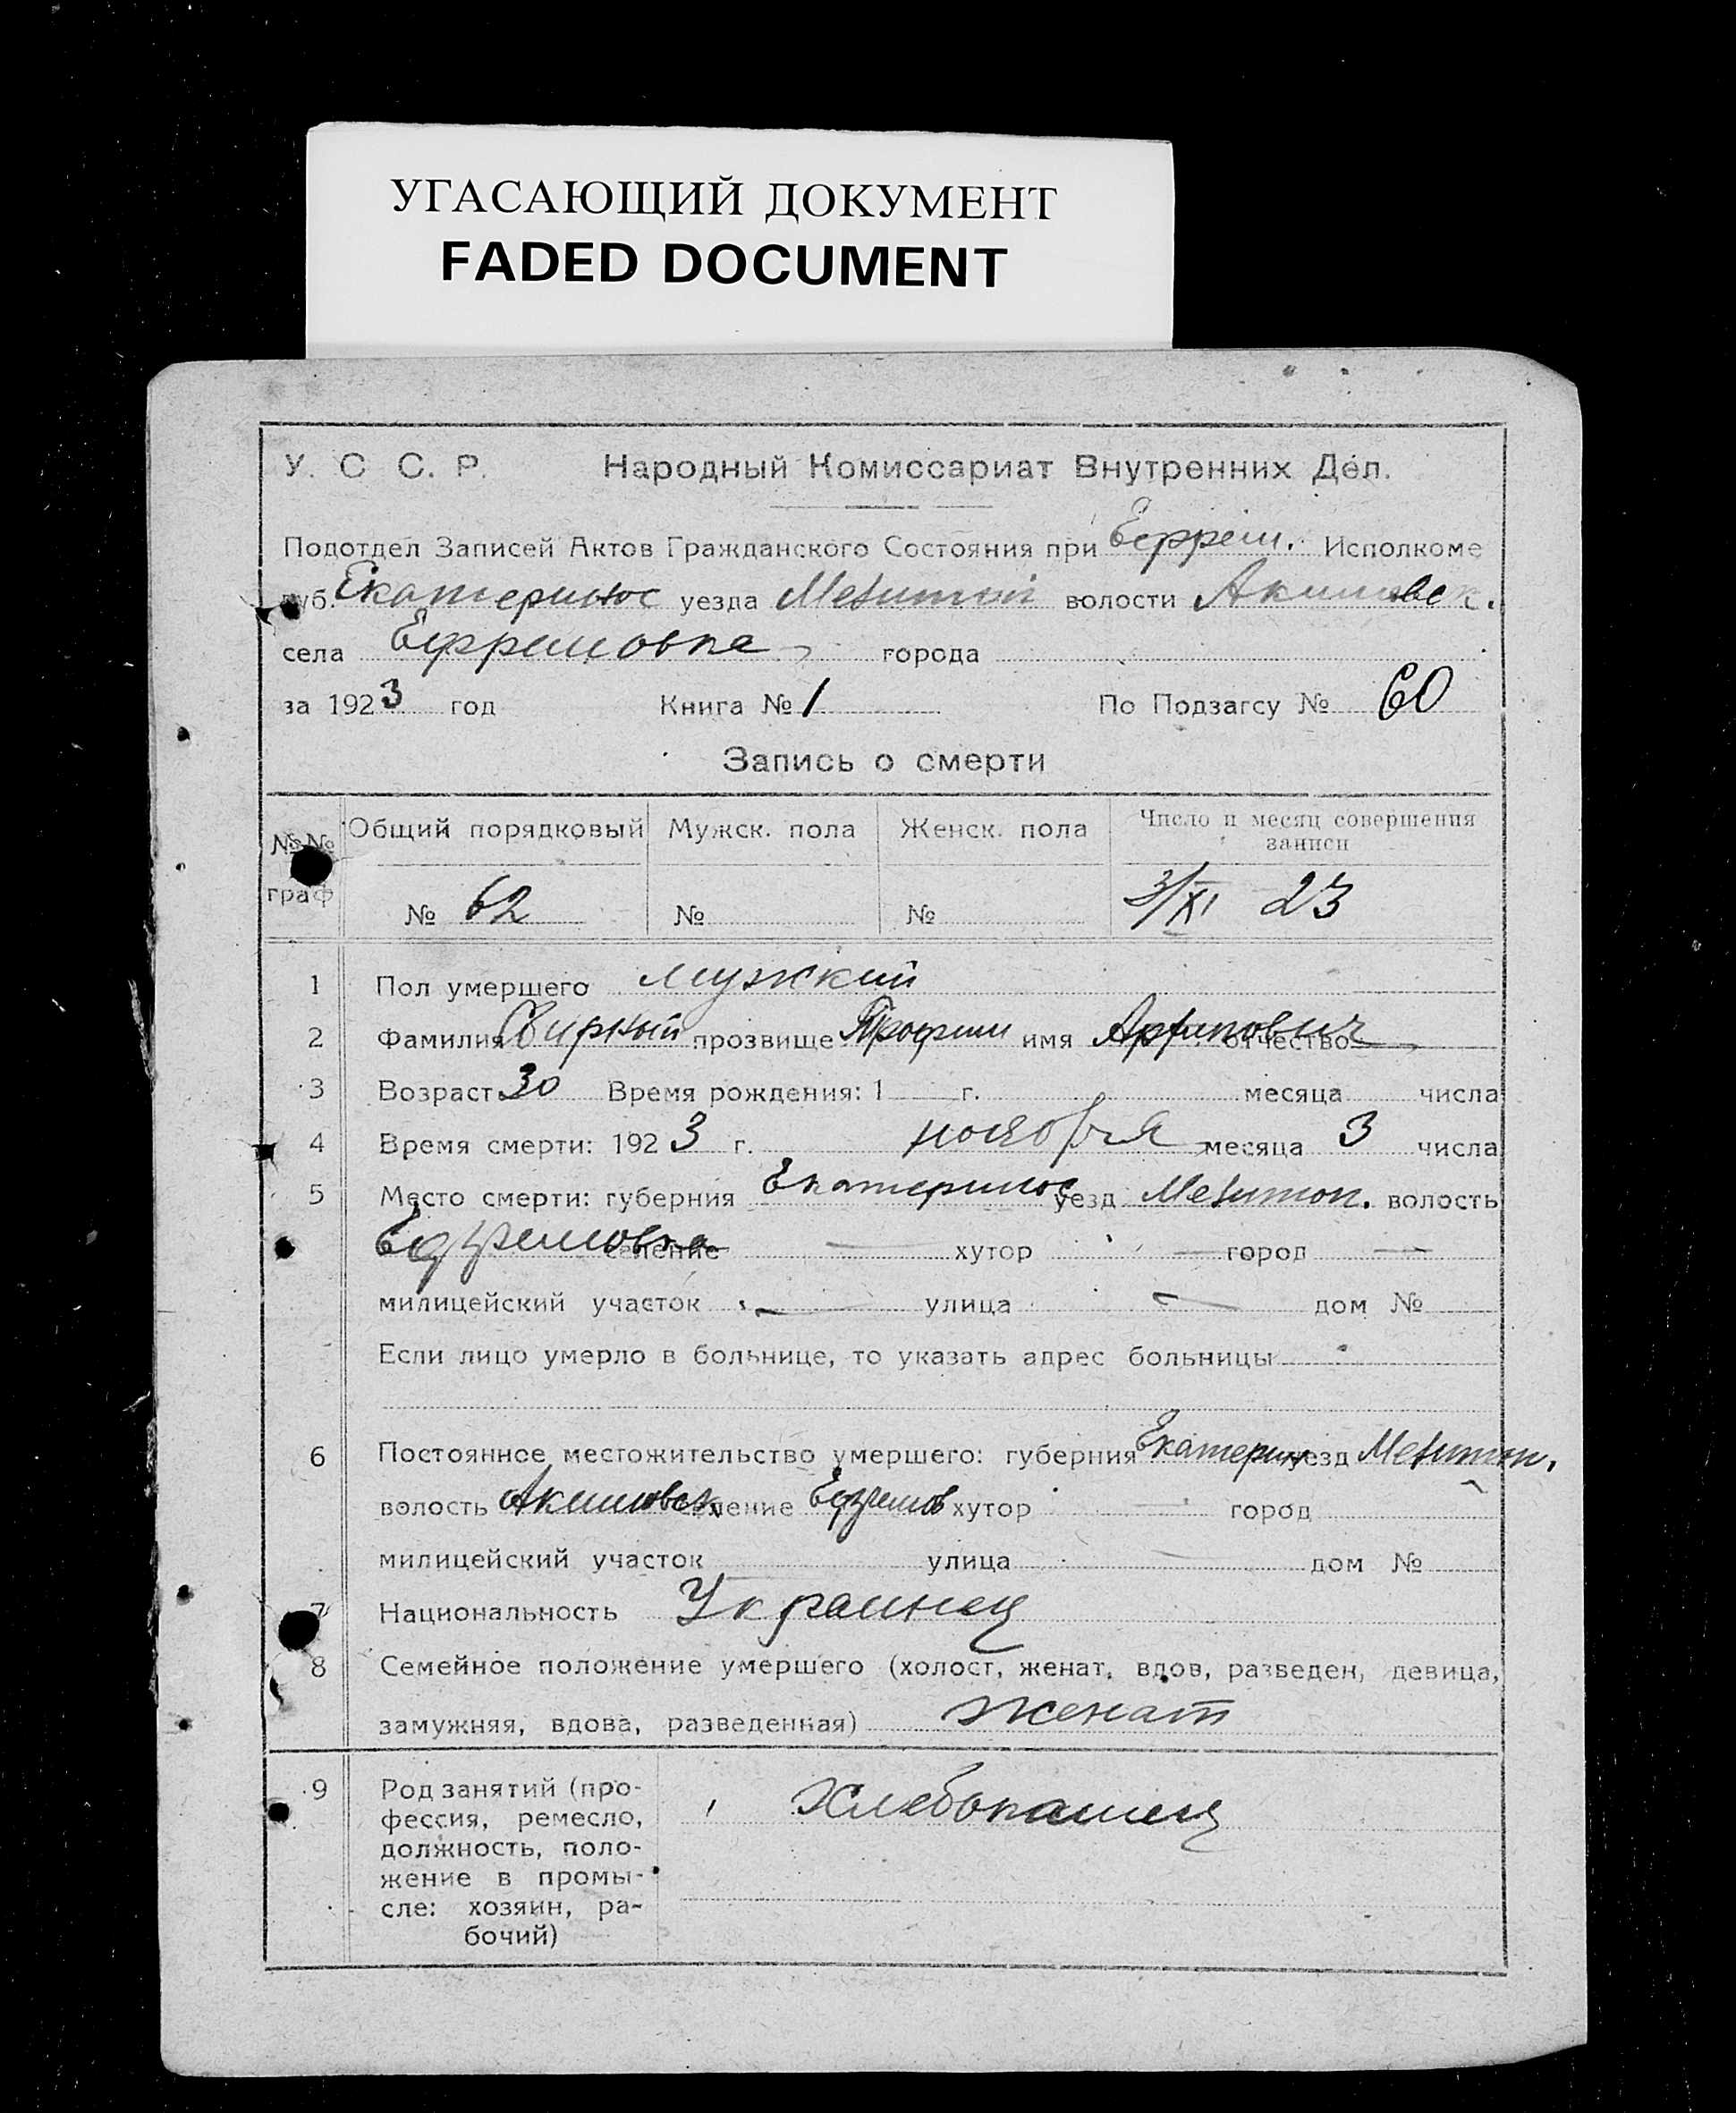 УГАСАЮЩИЙ ДОКУМЕНТ
FADED DOCUMENT
У. С С. Р. Народный Комиссариат Внутренних Дел.
Подотдел Записей Актов Гражданского Состояния при Ефрем. Исполкоме
губ. Екатеринос уезда Мелитоп волости Акимовск.
села Ефремовка города
за 1923 год Книга № 1 По Подзагсу № 60
Запись о смерти
№№ граф Общий порядковый Мужск. пола Женск. пола Число и месяц совершения записи
№ 62 № № 3/XI 23
1 Пол умершего мужский
2 Фамилия Свирный прозвище Трофим имя отчество
3 Возраст 30 Время рождения: 1 г. месяца числа
4 Время смерти: 1923 г. ноября месяца 3 числа
5 Место смерти: губерния Екатеринос уезд Мелитоп. волость
Ефремовка селение — хутор — город —
милицейский участок — улица — дом №
Если лицо умерло в больнице, то указать адрес больницы
6 Постоянное местожительство умершего: губерния Екатерин уезд Мелитоп.
волость Акимовск селение Ефремов хутор — город
милицейский участок улица — дом №
7 Национальность Украинец
8 Семейное положение умершего (холост, женат, вдов, разведен, девица,
замужняя, вдова, разведенная) женат
9 Род занятий (про-
фессия, ремесло, хлебопашец
должность, поло-
жение в промы-
сле: хозяин, ра-
бочий)